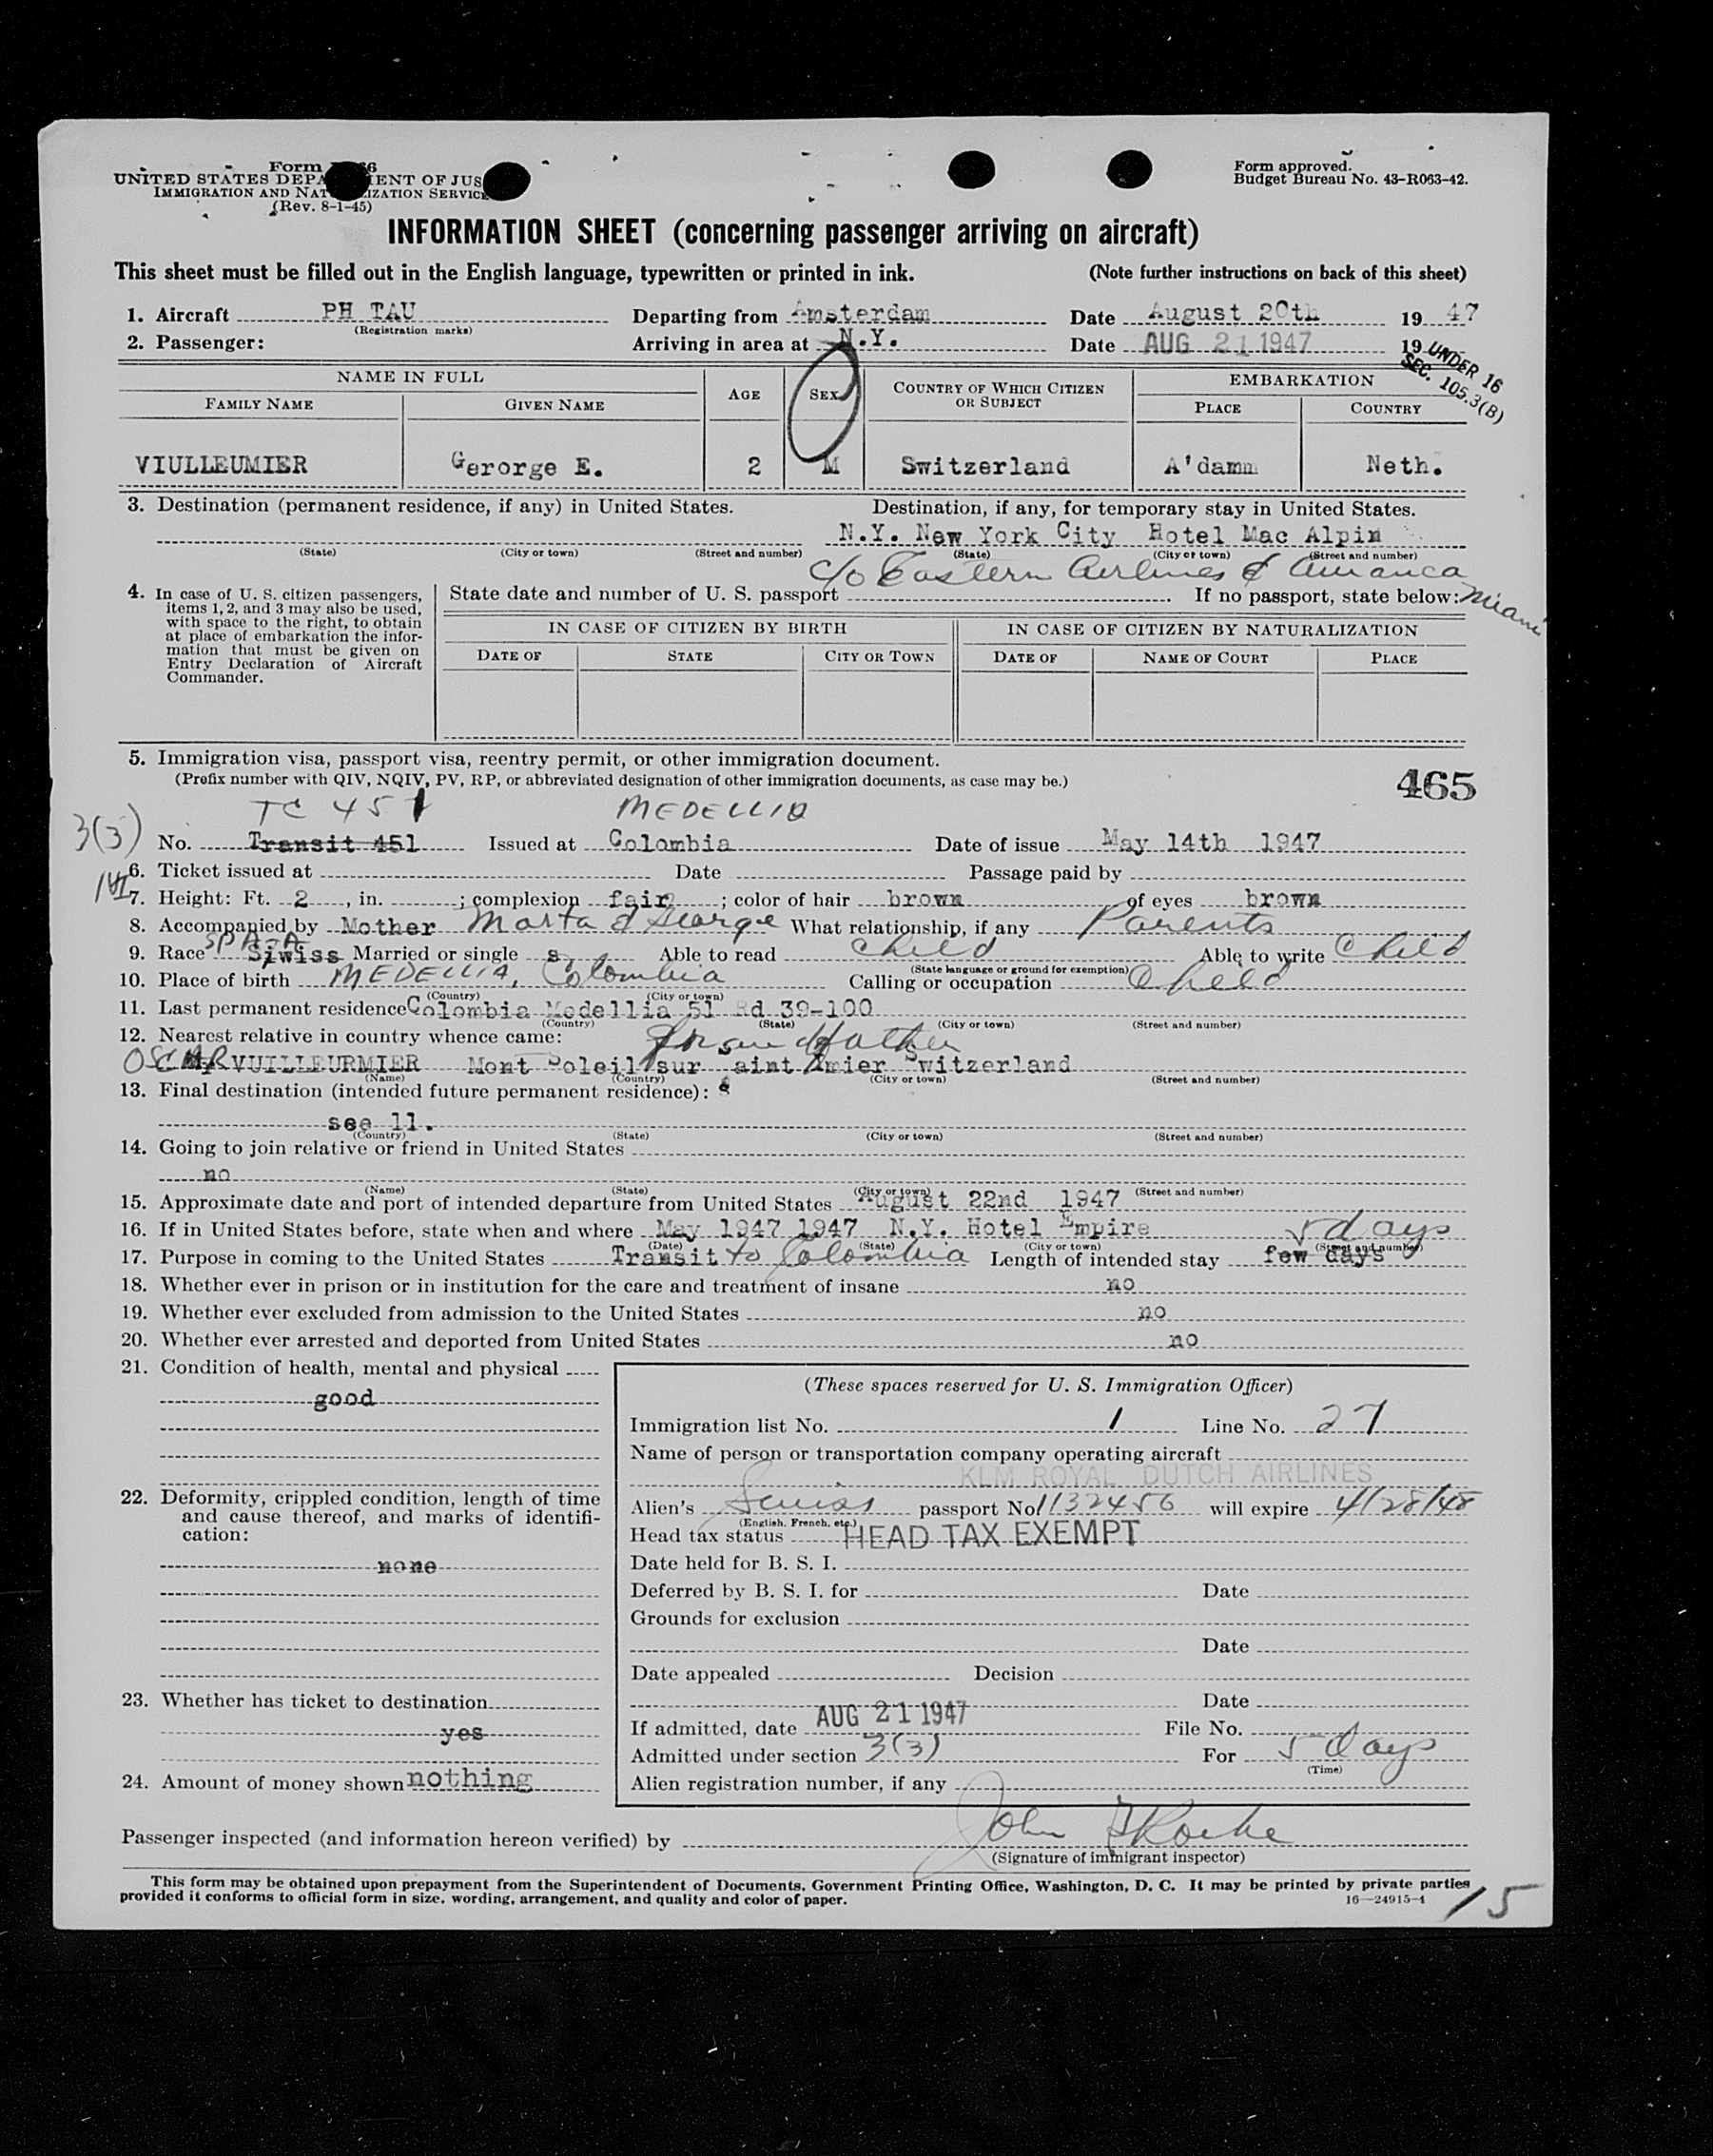 Form
UNITED STATES DEPA ENT OF JUS
IMMIGRATION AND NAT IZATION SERVICE
(Rev. 8-1-45)
Form approved.
Budget Bureau No. 43-R063-42.
INFORMATION SHEET (concerning passenger arriving on aircraft)
This sheet must be filled out in the English language, typewritten or printed in ink. (Note further instructions on back of this sheet)
1. Aircraft PH TAU Departing from Amsterdam Date August 20th 19 47
(Registration marks)
2. Passenger: Arriving in area at N.Y. Date AUG 21 1947 19
UNDER 16
SEC. 105.3(B)
NAME IN FULL AGE SEX COUNTRY OF WHICH CITIZEN OR SUBJECT EMBARKATION
FAMILY NAME GIVEN NAME PLACE COUNTRY
VIULLEUMIER Gerorge E. 2 M Switzerland A'damm Neth.
3. Destination (permanent residence, if any) in United States. Destination, if any, for temporary stay in United States.
N.Y. New York City Hotel Mac Alpin
(State) (City or town) (Street and number) (State) (City or town) (Street and number)
c/o Eastern Airlines Miami
4. In case of U. S. citizen passengers, items 1, 2, and 3 may also be used, with space to the right, to obtain at place of embarkation the information that must be given on Entry Declaration of Aircraft Commander.
State date and number of U. S. passport If no passport, state below:
IN CASE OF CITIZEN BY BIRTH IN CASE OF CITIZEN BY NATURALIZATION
DATE OF STATE CITY OR TOWN DATE OF NAME OF COURT PLACE
5. Immigration visa, passport visa, reentry permit, or other immigration document.
(Prefix number with QIV, NQIV, PV, RP, or abbreviated designation of other immigration documents, as case may be.)
465
TC 451 MEDELLIA
3(3) No. Transit 451 Issued at Colombia Date of issue May 14th 1947
6. Ticket issued at Date Passage paid by
7. Height: Ft. 2, in. ; complexion fair ; color of hair brown of eyes brown
8. Accompanied by Mother Marta & George What relationship, if any Parents
9. Race Swiss Married or single s Able to read child Able to write Child
(State language or ground for exemption)
10. Place of birth MEDELLIA, Colombia Calling or occupation Child
(Country) (City or town)
11. Last permanent residence Colombia Medellia 51 Rd 39-100
(Country) (State) (City or town) (Street and number)
12. Nearest relative in country whence came: Grandfather
OSCAR VUILLEURMIER Mont Soleil sur Saint Imier Switzerland
(Name) (Country) (City or town) (Street and number)
13. Final destination (intended future permanent residence):
see 11.
(Country) (State) (City or town) (Street and number)
14. Going to join relative or friend in United States
no
(Name) (State) (City or town) (Street and number)
15. Approximate date and port of intended departure from United States August 22nd 1947
16. If in United States before, state when and where May 1947 1947 N.Y. Hotel Empire
(Date) (State) (City or town) (Street and number)
5 days
17. Purpose in coming to the United States Transit to Colombia Length of intended stay few days
18. Whether ever in prison or in institution for the care and treatment of insane no
19. Whether ever excluded from admission to the United States no
20. Whether ever arrested and deported from United States no
21. Condition of health, mental and physical
good
22. Deformity, crippled condition, length of time and cause thereof, and marks of identification:
none
23. Whether has ticket to destination
yes
24. Amount of money shown nothing
(These spaces reserved for U. S. Immigration Officer)
Immigration list No. 1 Line No. 27
Name of person or transportation company operating aircraft
KLM ROYAL DUTCH AIRLINES
Alien's Swiss passport No. 1132456 will expire 4/28/48
(English, French, etc.)
Head tax status HEAD TAX EXEMPT
Date held for B. S. I.
Deferred by B. S. I. for Date
Grounds for exclusion
Date
Date appealed Decision
Date
If admitted, date AUG 21 1947 File No.
Admitted under section 3(3) For 5 days
(Time)
Alien registration number, if any
Passenger inspected (and information hereon verified) by John
(Signature of immigrant inspector)
This form may be obtained upon prepayment from the Superintendent of Documents, Government Printing Office, Washington, D. C. It may be printed by private parties
provided it conforms to official form in size, wording, arrangement, and quality and color of paper. 16—24915-1
15